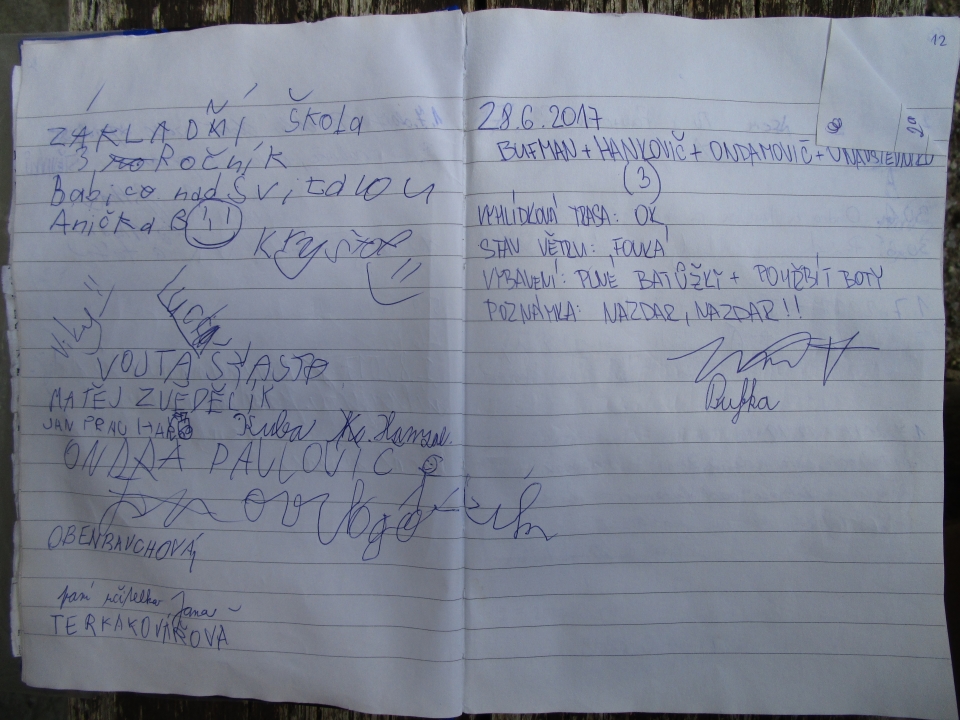 ZÁKLADŇÍ ŠKOLA
3 ROČNÍK
Babice nad Svitavou
Anička B
Kryštof
Viky
Lucka
VOJTA ŠŤASTA
MATĚJ ZVĚDĚLÍK
JAN Kuba
ONDRA PAVLOVIČ
OBENRAUCHOVÁ
paní učitelka Jana
TERKA KOVÁŘOVÁ
12
28.6.2017
BUFMAN + HANKOVIČ + ONDAMOVIČ +
(3)
VYHLÍDKOVÁ TRASA: OK
STAV VĚTRU: FOUKÁ
VYBAVENÍ: PLNÉ BATŮŽKY + BOTY
POZNÁMKA: NAZDAR, NAZDAR!!
Bufka